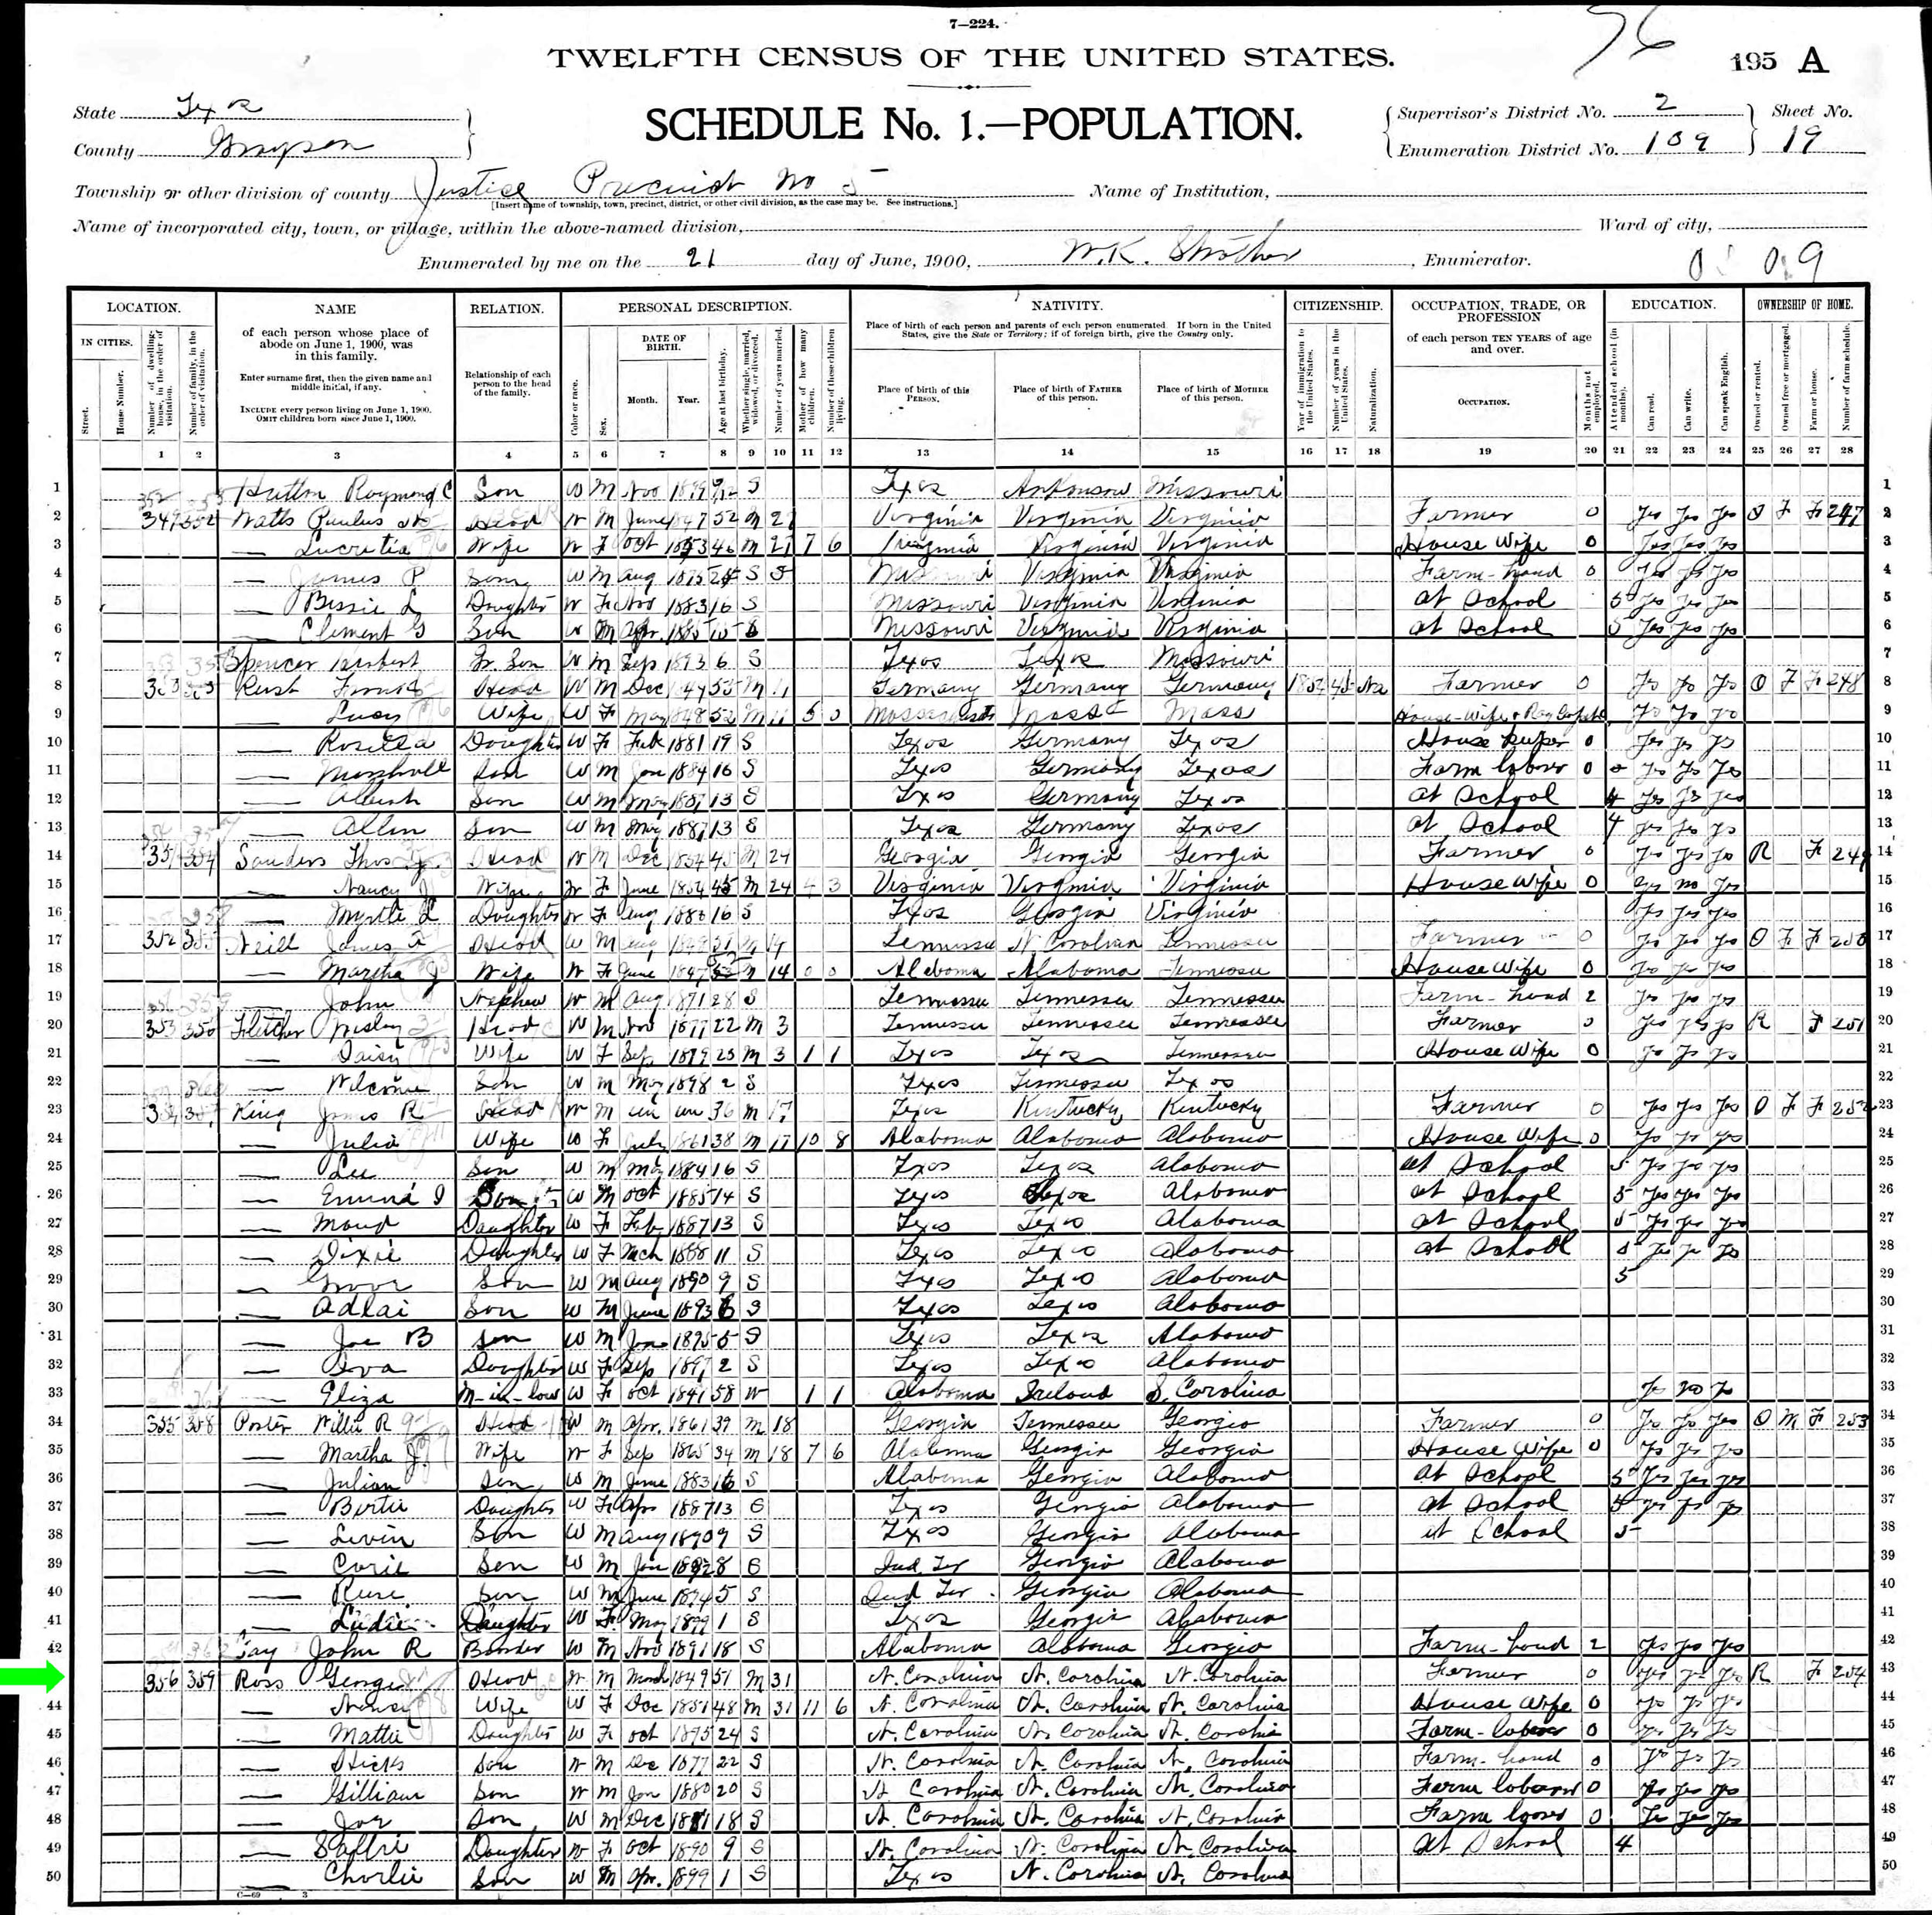 7—224.
76
TWELFTH CENSUS OF THE UNITED STATES.
195 A
SCHEDULE No. 1.—POPULATION.
State Tex
County Grayson
Supervisor's District No. 2
Enumeration District No. 139
Sheet No. 19
Township or other division of county Justice Precinct No 5
[Insert name of township, town, precinct, district, or other civil division, as the case may be. See instructions.]
Name of Institution,
Name of incorporated city, town, or village, within the above-named division,
Ward of city,
Enumerated by me on the 21 day of June, 1900, W. K. Strother, Enumerator.
LOCATION. NAME RELATION. PERSONAL DESCRIPTION. NATIVITY. CITIZENSHIP. OCCUPATION, TRADE, OR PROFESSION EDUCATION. OWNERSHIP OF HOME.
IN CITIES.
Street.
House Number.
Number of dwelling-house, in the order of visitation.
Number of family, in the order of visitation.
of each person whose place of abode on June 1, 1900, was in this family.
Enter surname first, then the given name and middle initial, if any.
INCLUDE every person living on June 1, 1900.
OMIT children born since June 1, 1900.
Relationship of each person to the head of the family.
Color or race.
Sex.
DATE OF BIRTH.
Month. Year.
Age at last birthday.
Whether single, married, widowed, or divorced.
Number of years married.
Mother of how many children.
Number of these children living.
Place of birth of each person and parents of each person enumerated. If born in the United States, give the State or Territory; if of foreign birth, give the Country only.
Place of birth of this PERSON.
Place of birth of FATHER of this person.
Place of birth of MOTHER of this person.
Year of immigration to the United States.
Number of years in the United States.
Naturalization.
of each person TEN YEARS of age and over.
OCCUPATION.
Months not employed.
Attended school (in months).
Can read.
Can write.
Can speak English.
Owned or rented.
Owned free or mortgaged.
Farm or house.
Number of farm schedule.
1 2 3 4 5 6 7 8 9 10 11 12 13 14 15 16 17 18 19 20 21 22 23 24 25 26 27 28
1 Hutton Raymond C Son W M Nov 1899 S Texas Arkansas Missouri 1
2 349 352 Watts Head W M June 1847 52 M 27 Virginia Virginia Virginia Farmer 0 Yes Yes Yes O F F 247 2
3 — Lucretia Wife W F Oct 1853 46 M 27 7 6 Virginia Virginia Virginia House Wife 0 Yes Yes Yes 3
4 — James P Son W M Aug 1875 24 S Missouri Virginia Virginia Farm-hand 0 Yes Yes Yes 4
5 — Bessie L Daughter W F Nov 1883 16 S Missouri Virginia Virginia at School 5 Yes Yes Yes 5
6 — Clement G Son W M Apr. 1885 15 S Missouri Virginia Virginia at School 5 Yes Yes Yes 6
7 Spencer Herbert Gr. Son W M Sep 1893 6 S Texas Texas Missouri 7
8 Rust Head W M Dec M 11 Germany Germany Germany 1854 45 Na Farmer 0 Yes Yes Yes O F F 248 8
9 — Lucy Wife W F May 1848 52 M 11 5 0 Massachusetts Mass Mass House-Wife Yes Yes Yes 9
10 — Rosella Daughter W F Feb 1881 19 S Texas Germany Texas House keeper 0 Yes Yes Yes 10
11 — Marshall Son W M Jan 1884 16 S Texas Germany Texas Farm laborer 0 Yes Yes Yes 11
12 — Son W M May 1887 13 S Texas Germany Texas at School 4 Yes Yes Yes 12
13 — Allen Son W M May 1887 13 S Texas Germany Texas at School 4 Yes Yes Yes 13
14 354 Sanders Thos J. Head W M Dec 1854 45 M 24 Georgia Georgia Georgia Farmer 0 Yes Yes Yes R F 249 14
15 — Nancy J Wife W F June 1854 45 M 24 4 3 Virginia Virginia Virginia House Wife 0 Yes no Yes 15
16 — Myrtle L Daughter W F Aug 16 S Texas Georgia Virginia Yes Yes Yes 16
17 352 355 Neill James Head W M Aug M 14 Tennessee N Carolina Tennessee Farmer 0 Yes Yes Yes O F F 250 17
18 — Martha J Wife W F June 1847 M 14 0 0 Alabama Alabama Tennessee House Wife 0 Yes Yes Yes 18
19 — John Nephew W M Aug 1871 28 S Tennessee Tennessee Tennessee Farm-hand 2 Yes Yes Yes 19
20 353 356 Fletcher Wesley Head W M Nov 1877 22 M 3 Tennessee Tennessee Tennessee Farmer 0 Yes Yes Yes R F 251 20
21 — Daisy Wife W F Sep 1879 M 3 1 1 Texas Texas Tennessee House Wife 0 Yes Yes Yes 21
22 — Welcome Son W M May 1898 2 S Texas Tennessee Texas 22
23 354 357 King James R Head W M un un 36 M 17 Texas Kentucky Kentucky Farmer 0 Yes Yes Yes O F F 252 23
24 — Julia Wife W F July 1861 38 M 17 10 8 Alabama Alabama Alabama House Wife 0 Yes Yes Yes 24
25 — Lee Son W M May 1884 16 S Texas Texas Alabama at School 5 Yes Yes Yes 25
26 — Son W M Oct 1885 14 S Texas Texas Alabama at School 5 Yes Yes Yes 26
27 — Maud Daughter W F Feb 1887 13 S Texas Texas Alabama at School 5 Yes Yes Yes 27
28 — Dixie Daughter W F Mch 1888 11 S Texas Texas Alabama at School 5 Yes Yes Yes 28
29 — Grover Son W M Aug 1890 9 S Texas Texas Alabama 5 29
30 — Adlai Son W M June 1893 6 S Texas Texas Alabama 30
31 — Joe B Son W M Jan 1895 5 S Texas Texas Alabama 31
32 — Daughter W F Sep 1897 2 S Texas Texas Alabama 32
33 — Eliza M-in-law W F Oct 1841 58 W 1 1 Alabama Ireland S. Carolina Yes Yes Yes 33
34 355 358 Porter Willie R Head W M Apr. 1861 39 M 18 Georgia Tennessee Georgia Farmer 0 Yes Yes Yes O M F 253 34
35 — Martha J. Wife W F Sep 1865 34 M 18 7 6 Alabama Georgia Georgia House Wife 0 Yes Yes Yes 35
36 — Julian Son W M June 1883 16 S Alabama Georgia Alabama at School 5 Yes Yes Yes 36
37 — Bertie Daughter W F Apr 1887 13 S Texas Georgia Alabama at School 5 Yes Yes Yes 37
38 — Levin Son W M Aug 1890 9 S Texas Georgia Alabama at School 5 38
39 — Son W M Jan 1892 8 S Ind Ter Georgia Alabama 39
40 — Son W M June 1894 5 S Ind Ter Georgia Alabama 40
41 — Daughter W F May 1899 1 S Texas Georgia Alabama 41
42 John R Boarder W M Nov 18 S Alabama Alabama Georgia Farm-hand 2 Yes Yes Yes 42
43 356 359 Ross George Head W M March 1849 51 M 31 N. Carolina N. Carolina N. Carolina Farmer 0 Yes Yes Yes R F 254 43
44 — Wife W F Dec 1851 48 M 31 11 6 N. Carolina N. Carolina N. Carolina House Wife 0 Yes Yes Yes 44
45 — Mattie Daughter W F Oct 1875 24 S N. Carolina N. Carolina N. Carolina Farm-laborer 0 Yes Yes Yes 45
46 — Hicks Son W M Dec 1877 22 S N. Carolina N. Carolina N. Carolina Farm-hand 0 Yes Yes Yes 46
47 — Gilliam Son W M Jan 1880 20 S N. Carolina N. Carolina N. Carolina Farm laborer 0 Yes Yes Yes 47
48 — Joe Son W M Dec 1881 18 S N. Carolina N. Carolina N. Carolina Farm laborer 0 Yes Yes Yes 48
49 — Daughter W F Oct 1890 9 S N. Carolina N. Carolina N. Carolina at School 4 49
50 — Charlie Son W M Apr. 1899 1 S Texas N. Carolina N. Carolina 50
C—69 3